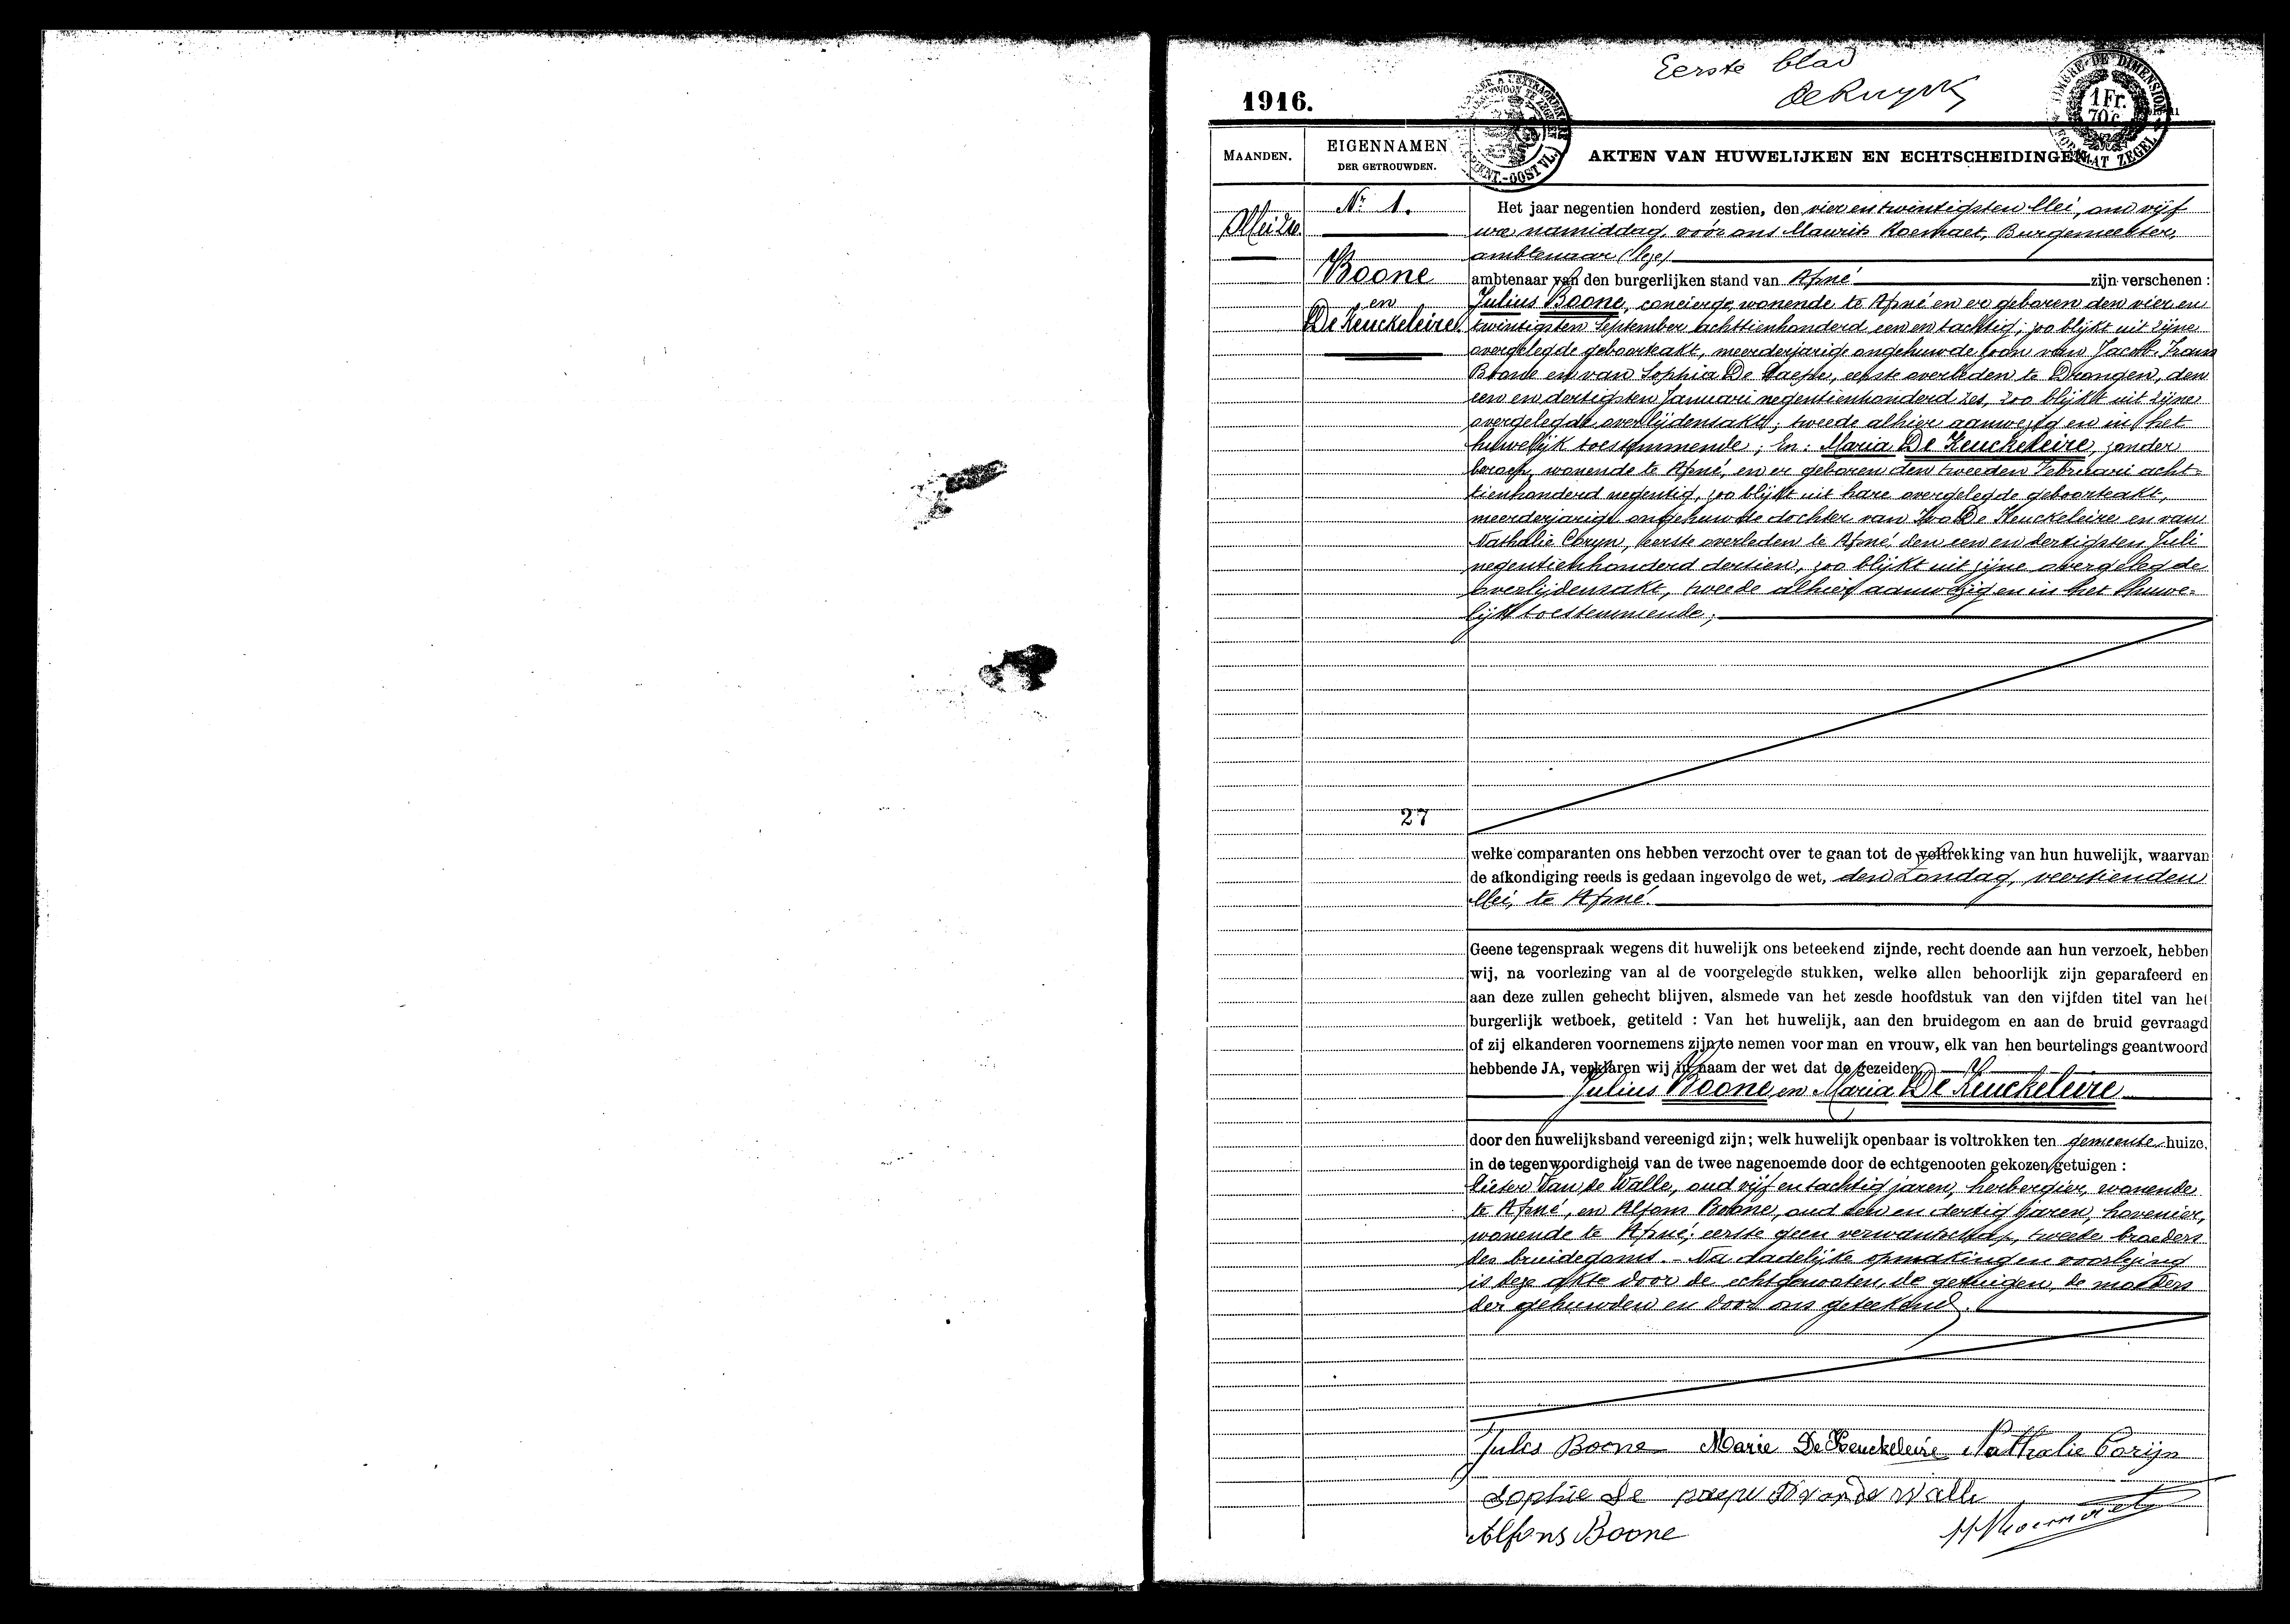 Eerste blad
De Ruyck
1916.
1 Fr.
70 c.
MAANDEN.
EIGENNAMEN
DER GETROUWDEN.
AKTEN VAN HUWELIJKEN EN ECHTSCHEIDINGEN
Mei 24.
Nr 1.
Boone
en
De Keuckeleire.
Het jaar negentien honderd zestien, den vier en twintigsten Mei, om vijf
ure namiddag, vóór ons Maurits Roemaet, Burgemeester,
ambtenaar (leze)
ambtenaar van den burgerlijken stand van Afsné zijn verschenen :
Julius Boone, concierge, wonende te Afsné en er geboren den vier en
twintigsten September achttienhonderd een en tachtig, zoo blijkt uit zijne
overgelegde geboorteakt, meerderjarige ongehuwde zoon van Jacob-Frans
Boone en van Sophia De Paepe, eerste overleden te Drongen, den
een en dertigsten Januari negentienhonderd zes, zoo blijkt uit zijne
overgelegde overlijdensakt; tweede alhier aanwezig en in het
huwelijk toestemmende; En: Maria De Keuckeleire, zonder
beroep, wonende te Afsné, en er geboren den tweeden Februari acht-
tienhonderd negentig, zoo blijkt uit hare overgelegde geboorteakt,
meerderjarige ongehuwde dochter van Ivo De Keuckeleire en van
Nathalie Coryn, eerste overleden te Afsné, den een en dertigsten Juli
negentienhonderd dertien, zoo blijkt uit zijne overgelegde
overlijdensakt, tweede alhier aanwezig en in het huwe-
lijk toestemmende;
27
welke comparanten ons hebben verzocht over te gaan tot de voltrekking van hun huwelijk, waarvan
de afkondiging reeds is gedaan ingevolge de wet, den Zondag, veertienden
Mei, te Afsné.
Geene tegenspraak wegens dit huwelijk ons beteekend zijnde, recht doende aan hun verzoek, hebben
wij, na voorlezing van al de voorgelegde stukken, welke allen behoorlijk zijn geparafeerd en
aan deze zullen gehecht blijven, alsmede van het zesde hoofdstuk van den vijfden titel van het
burgerlijk wetboek, getiteld : Van het huwelijk, aan den bruidegom en aan de bruid gevraagd
of zij elkanderen voornemens zijn te nemen voor man en vrouw, elk van hen beurtelings geantwoord
hebbende JA, verklaren wij in naam der wet dat de gezeiden
Julius Boone en Maria De Keuckeleire
door den huwelijksband vereenigd zijn; welk huwelijk openbaar is voltrokken ten gemeente huize,
in de tegenwoordigheid van de twee nagenoemde door de echtgenooten gekozen getuigen :
Pieter Van de Walle, oud vijf en tachtig jaren, herbergier, wonende
te Afsné, en Alfons Boone, oud een en dertig jaren, hovenier,
wonende te Afsné; eerste geen verwantschap, tweede broeders
des bruidegoms. – Na dadelijke opmaking en voorlezing
is deze akte door de echtgenooten, de getuigen, de moeders
der gehuwden en door ons geteekend.
Jules Boone Marie De Keuckeleire Nathalie Corijn
Sophie De paepe P Van de Walle
Alfons Boone M Roemaet